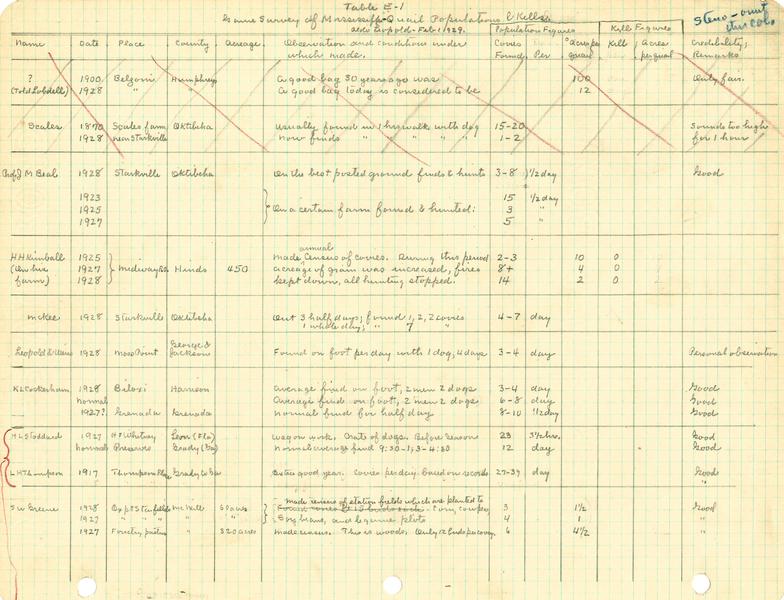 Table E-1
Game Survey of Mississippi - Quail Populations & Kills
Aldo Leopold - Feb 1, 1929.
Steno - omit this colo
Name Date Place County Acreage Observation and conditions under which made. Population Figures Coveys Found Per Acres per quail Kill Figures Kill Acres per quail Credibility; Remarks
? 1900 Belzoni Humphreys A good bag 30 years ago was 100 Only fair.
(Told Lobdell) 1928 " " A good bag today is considered to be 12
Scales 1870 Scales farm Oktibeha Usually found in 1 hr walk with dog 15-20 Sounds too high
1928 near Starkville now finds " " " " " 1-2 for 1 hour
Prof J M Beal 1928 Starkville Oktibeha On the best posted ground finds & hunts 3-8 1/2 day Good
1923 15 1/2 day
1925 On a certain farm found & hunted: 3 "
1927 5 "
annual
H H Kimball 1925 made census of coveys. During this period 2-3 10 0
(On his 1927 Midway Hinds 450 acreage of grain was increased, fires 8+ 4 0
farm) 1928 kept down, all hunting stopped. 14 2 0
McKee 1928 Starkville Oktibeha Out 3 half days; found 1, 2, 2 coveys 4-7 day
1 whole day; " 7 "
George &
Leopold & 1928 Moss Point Jackson Found on foot per day with 1 dog, 4 days 3-4 day Personal observation
K L Cockerham 1928 Biloxi Harrison Average find on foot, 2 men 2 dogs 3-4 day Good
normal Average find on foot, 2 men 2 dogs 6-8 day Good
1927? Granada Grenada normal find for half day 8-10 1/2 day Good
H L Stoddard 1927 H P Whitney Leon (Fla) wagon work. Crate of dogs. Before season 23 3 1/2 hrs. Good
normal Preserve Grady (Ga) normal average find 9:30-1; 3-4:30 12 day Good
L H Thompson 1917 Thompson Place Grady Co Ga Extra good year. Coveys per day. based on records 27-39 day Good
"
made census of station fields which are planted to
S W Greene 1928 Expt Sta fields McNeill 60 acres Corn, cowpeas 3 1 1/2 Good
1927 " " " " Soy beans, and legume plots 4 1 "
1927 Forestry pastures 320 acres made census. This is woods. Only 12 birds per covey. 6 4 1/2 "